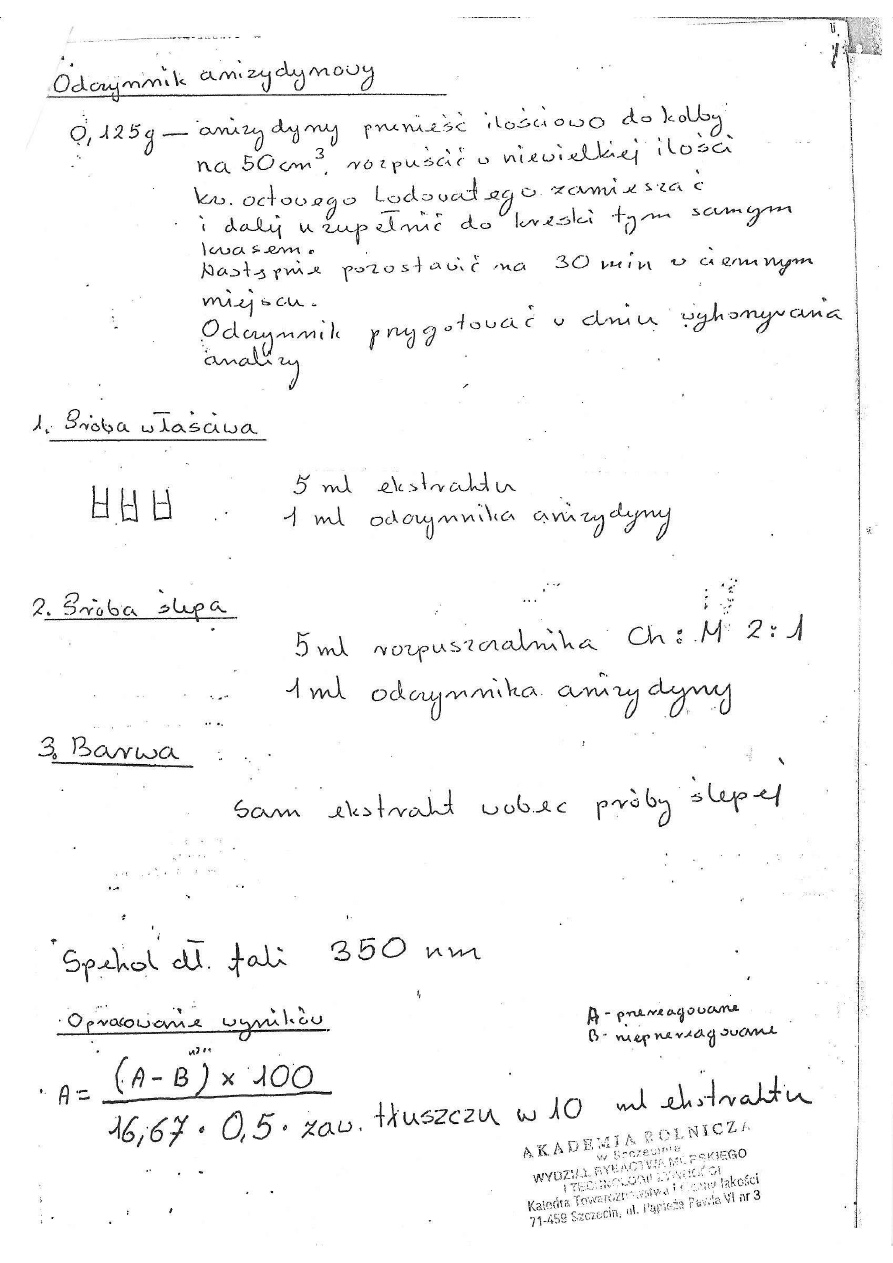 Odczynnik anizydynowy
0,125g — anizydyny przenieść ilościowo do kolby
na 50cm³, rozpuścić w niewielkiej ilości
kw. octowego lodowatego zamieszać
i dalej uzupełnić do kreski tym samym
kwasem.
Następnie pozostawić na 30 min w ciemnym
miejscu.
Odczynnik przygotować w dniu wykonywania
analizy
1. Próba właściwa
5 ml ekstraktu
1 ml odczynnika anizydyny
2. Próba ślepa
5 ml rozpuszczalnika Ch : M 2 : 1
1 ml odczynnika anizydyny
3. Barwa
Sam ekstrakt wobec próby ślepej
Spekol dł. fali 350 nm
Opracowanie wyników
A - przereagowane
B - nieprzereagowane
A = (A - B) x 100
16,67 · 0,5 · zaw. tłuszczu w 10 ml ekstraktu
AKADEMIA ROLNICZA
w Szczecinie
WYDZIAŁ RYBACTWA MORSKIEGO
I TECHNOLOGII ŻYWNOŚCI
Katedra Towaroznawstwa i Oceny Jakości
71-459 Szczecin, ul. Papieża Pawła VI nr 3